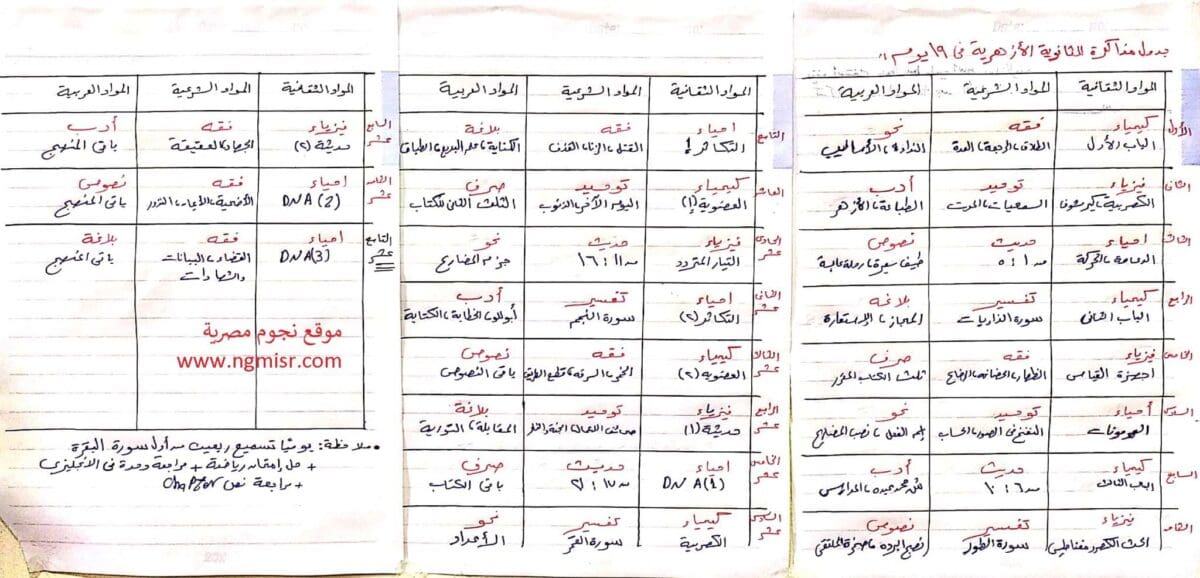 جدول مذاكرة للثانوية الأزهرية فى ١٩ يوم
المواد الثقافية المواد الشرعية المواد العربية
الأول كيمياء فقه نحو
الباب الأول الطلاق، الرجعة، العدة النداء، الأساليب
الثانى فيزياء توحيد أدب
الكهربية، كيرشوف السمعيات، الموت الطباعة، الأزهر
الثالث احياء حديث نصوص
الدعامة، الحركة من ١ : ٥
الرابع كيمياء تفسير بلاغة
الباب الثانى سورة الذاريات المجاز، الإستعارة
الخامس فيزياء فقه صرف
اجهزة القياس الظهار، الحضانة، الرضاع ثلث الكتاب
السادس أحياء توحيد نحو
الهرمونات النفخ فى الصور، الحساب اسم الفعل، نصب المضارع
السابع كيمياء حديث أدب
الباب الثالث من ٦ : ١٠ محمد عبده، المدارس
الثامن فيزياء تفسير نصوص
الحث الكهرومغناطيسى سورة الطور
المواد الثقافية المواد الشرعية المواد العربية
التاسع احياء فقه بلاغة
التكاثر ١ القتل، الزنا، القذف الكناية، علم البديع، الطباق
العاشر كيمياء توحيد صرف
العضوية (١) اليوم الآخر، الذنوب الثلث الثانى للكتاب
الحادى عشر فيزياء حديث نحو
التيار المتردد من ١١ : ١٦ جزم المضارع
الثانى عشر احياء تفسير أدب
التكاثر (٢) سورة النجم أبوللو، الخطابة، الكتابة
الثالث عشر كيمياء فقه نصوص
العضوية (٢) الخمر، السرقة، قطع الطريق باقى النصوص
الرابع عشر فيزياء توحيد بلاغة
حديثة (١) المقابلة، التورية
الخامس عشر احياء حديث صرف
DNA (1) من ١٧ : ٢١ باقى الكتاب
السادس عشر كيمياء تفسير نحو
الكهربية سورة القمر الأعداد
المواد الثقافية المواد الشرعية المواد العربية
السابع عشر فيزياء فقه أدب
حديثة (٢) الجهاد، العقيقة باقى المنهج
الثامن عشر احياء فقه نصوص
DNA (2) الأضحية، الأيمان، النذور باقى المنهج
التاسع عشر احياء فقه بلاغة
DNA (3) القضاء، البينات باقى المنهج
والشهادات
موقع نجوم مصرية
www.ngmisr.com
• ملاحظة: يوميًا تسميع ربعين من أول سورة البقرة
+ حل امتحان رياضة + مراجعة وحدة فى الانجليزى
+ مراجعة نص chapter